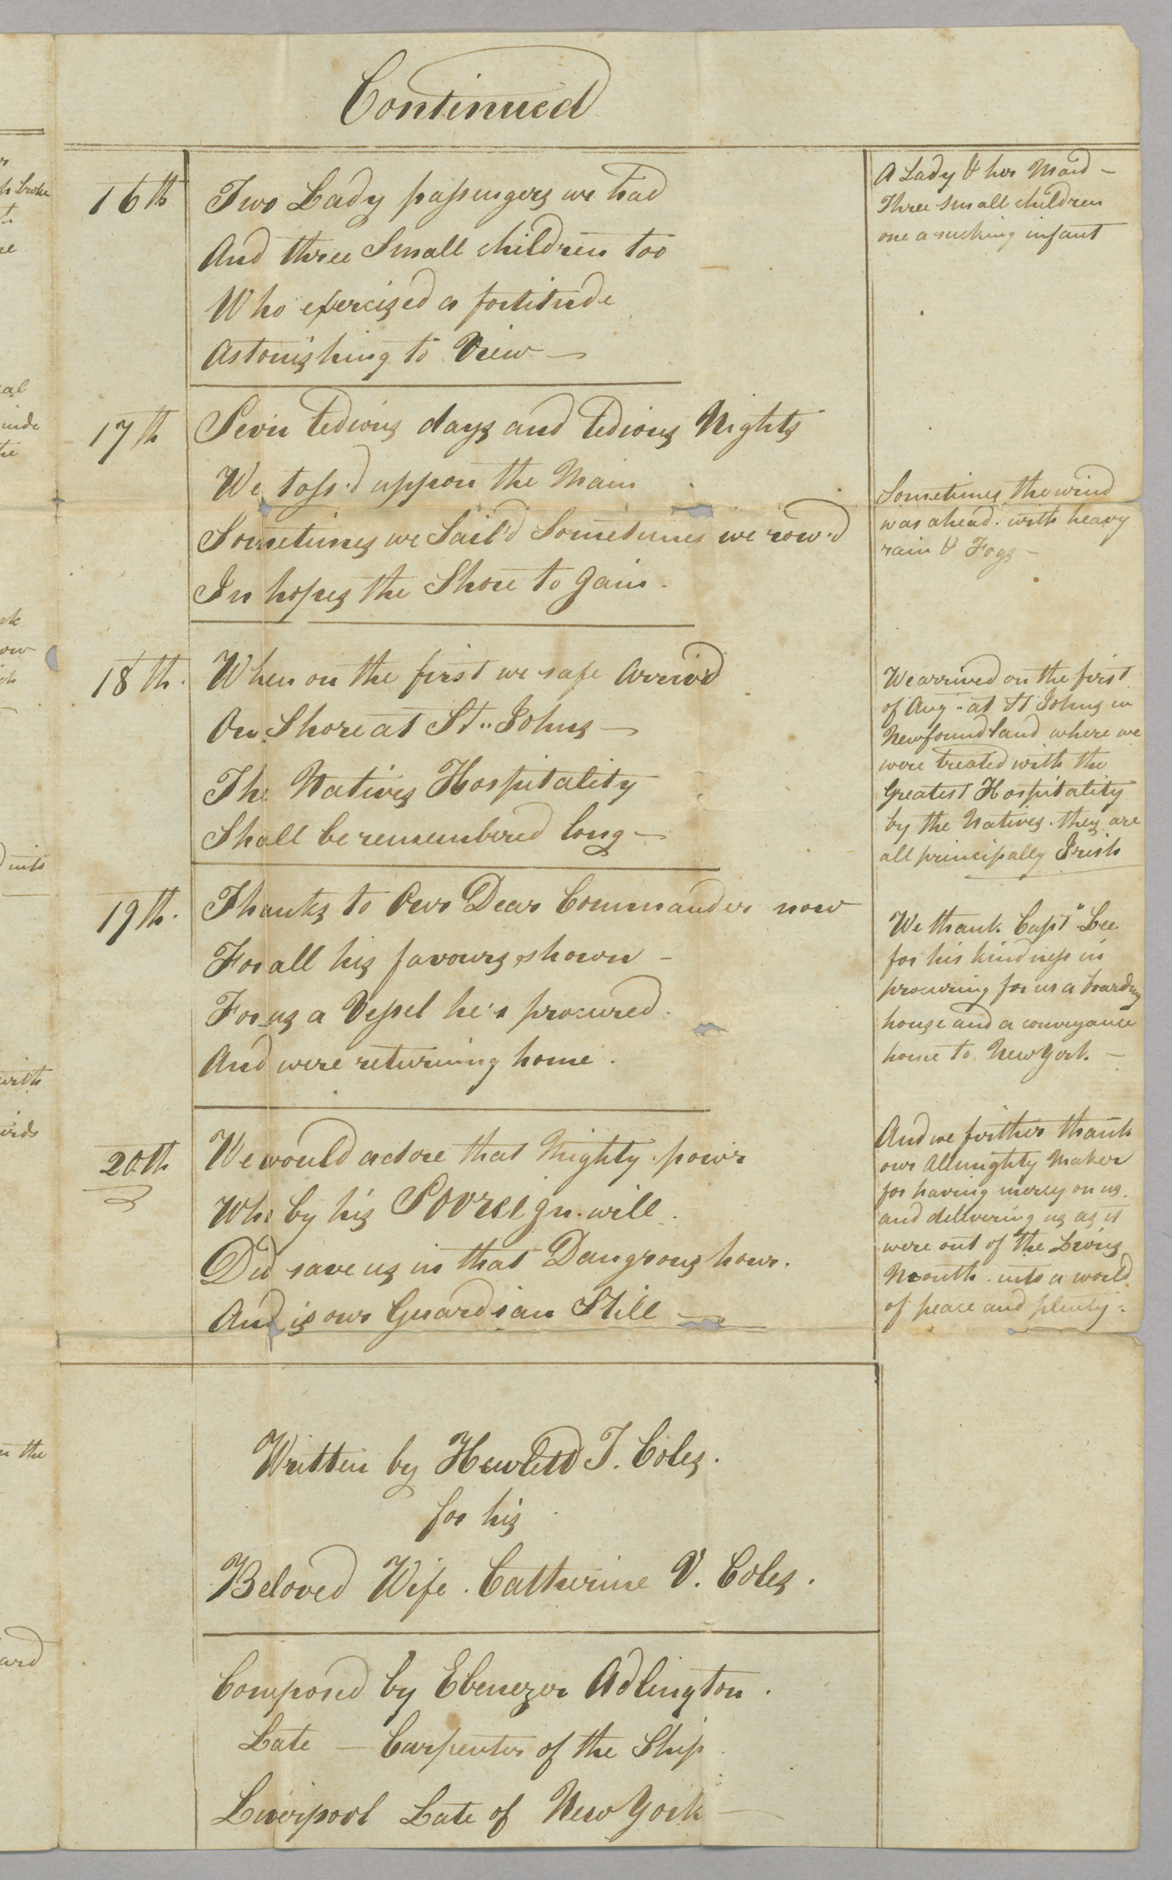 Continued
16th
Two Lady passengers we had
And three Small children too
Who exercised a fortitude
Astonishing to View —
A Lady & her Maid —
Three small children
one a sucking infant
17th
Sevn tedious days and tedious Nights
We toss'd uppon the Main
Sometimes we Sail'd Sometimes we row'd
In hopes the Shore to Gain.
Sometimes the wind
was ahead. with heavy
rain & Fogs —
18th.
When on the first we safe Arrived
On Shore at St.. Johns —
The Natives Hospitality
Shall be remembered long —
We arrived on the first
of Aug.. at St Johns in
Newfoundland where we
were treated with the
Greatest Hospitality
by the Natives. they are
all principally Irish
19th.
Thanks to Our Dear Commander now
For all his favours shown —
For us a Vessel he's procured.
And were returning home.
We thank Capt" Lee
for his kindness in
procuring for us a boarding
house and a conveyance
home to New York. —
20th
We would adore that Mighty powr
Who by his Sovreign will.
Did save us in that Dangrous hour.
And is our Guardian Still —
And we further thank
our Allmighty Maker
for having mercy on us.
and dellivering us as it
were out of the
Mouth. into a world
of peace and plenty.
Written by Hewlett T. Coles.
for his
Beloved Wife. Catherine V. Coles.
Composed by Ebenezer Adlington.
Late — Carpenter of the Ship
Liverpool Late of New York —